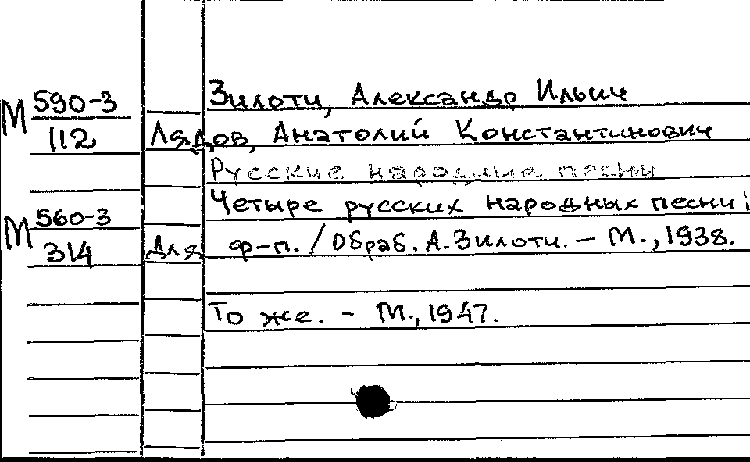 Зилоти, Александр Ильич
М 590-3
112
Лядов, Анатолий Константинович
Русские народные песни
Четыре русских народных песни:
М 560-3
314
Для ф-п. / Обраб. А. Зилоти. – М., 1938.
То же. – М., 1947.